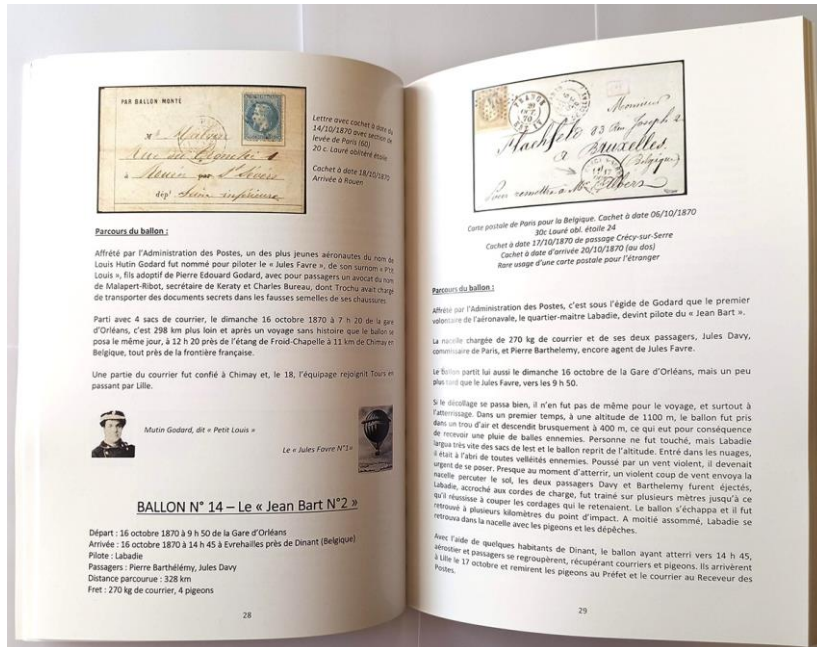 PAR BALLON MONTÉ
Lettre avec cachet à date du
14/10/1870 avec section de
levée de Paris (60)
20 c. Lauré oblitéré étoile
Cachet à date 18/10/1870
Arrivée à Rouen
Parcours du ballon :
Affrété par l'Administration des Postes, un des plus jeunes aéronautes du nom de
Louis Hutin Godard fut nommé pour piloter le « Jules Favre », de son surnom « P'tit
Louis », fils adoptif de Pierre Edouard Godard, avec pour passagers un avocat du nom
de Malapert-Ribot, secrétaire de Keraty et Charles Bureau, dont Trochu avait chargé
de transporter des documents secrets dans les fausses semelles de ses chaussures.
Parti avec 4 sacs de courrier, le dimanche 16 octobre 1870 à 7 h 20 de la gare
d'Orléans, c'est 298 km plus loin et après un voyage sans histoire que le ballon se
posa le même jour, à 12 h 20 près de l'étang de Froid-Chapelle à 11 km de Chimay en
Belgique, tout près de la frontière française.
Une partie du courrier fut confié à Chimay et, le 18, l'équipage rejoignit Tours en
passant par Lille.
Mutin Godard, dit « Petit Louis »
Le « Jules Favre N°1»
BALLON N° 14 – Le « Jean Bart N°2 »
Départ : 16 octobre 1870 à 9 h 50 de la Gare d'Orléans
Arrivée : 16 octobre 1870 à 14 h 45 à Evrehailles près de Dinant (Belgique)
Pilote : Labadie
Passagers : Pierre Barthélémy, Jules Davy
Distance parcourue : 328 km
Fret : 270 kg de courrier, 4 pigeons
28
Monsieur
Flachfeld 83 Rue Joseph 2
à Bruxelles.
(Belgique)
Pour remettre à Mr Albers
Carte postale de Paris pour la Belgique. Cachet à date 06/10/1870
30c Lauré obl. étoile 24
Cachet à date 17/10/1870 de passage Crécy-sur-Serre
Cachet à date d'arrivée 20/10/1870 (au dos)
Rare usage d'une carte postale pour l'étranger
Parcours du ballon :
Affrété par l'Administration des Postes, c'est sous l'égide de Godard que le premier
volontaire de l'aéronavale, le quartier-maitre Labadie, devint pilote du « Jean Bart ».
La nacelle chargée de 270 kg de courrier et de ses deux passagers, Jules Davy,
commissaire de Paris, et Pierre Barthelemy, encore agent de Jules Favre.
Le ballon partit lui aussi le dimanche 16 octobre de la Gare d'Orléans, mais un peu
plus tard que le Jules Favre, vers les 9 h 50.
Si le décollage se passa bien, il n'en fut pas de même pour le voyage, et surtout à
l'atterrissage. Dans un premier temps, à une altitude de 1100 m, le ballon fut pris
dans un trou d'air et descendit brusquement à 400 m, ce qui eut pour conséquence
de recevoir une pluie de balles ennemies. Personne ne fut touché, mais Labadie
largua très vite des sacs de lest et le ballon reprit de l'altitude. Entré dans les nuages,
il était à l'abri de toutes velléités ennemies. Poussé par un vent violent, il devenait
urgent de se poser. Presque au moment d'atterrir, un violent coup de vent envoya la
nacelle percuter le sol, les deux passagers Davy et Barthelemy furent éjectés,
Labadie, accroché aux cordes de charge, fut trainé sur plusieurs mètres jusqu'à ce
qu'il réussisse à couper les cordages qui le retenaient. Le ballon s'échappa et il fut
retrouvé à plusieurs kilomètres du point d'impact. A moitié assommé, Labadie se
retrouva dans la nacelle avec les pigeons et les dépêches.
Avec l'aide de quelques habitants de Dinant, le ballon ayant atterri vers 14 h 45,
aérostier et passagers se regroupèrent, récupérant courriers et pigeons. Ils arrivèrent
à Lille le 17 octobre et remirent les pigeons au Préfet et le courrier au Receveur des
Postes.
29